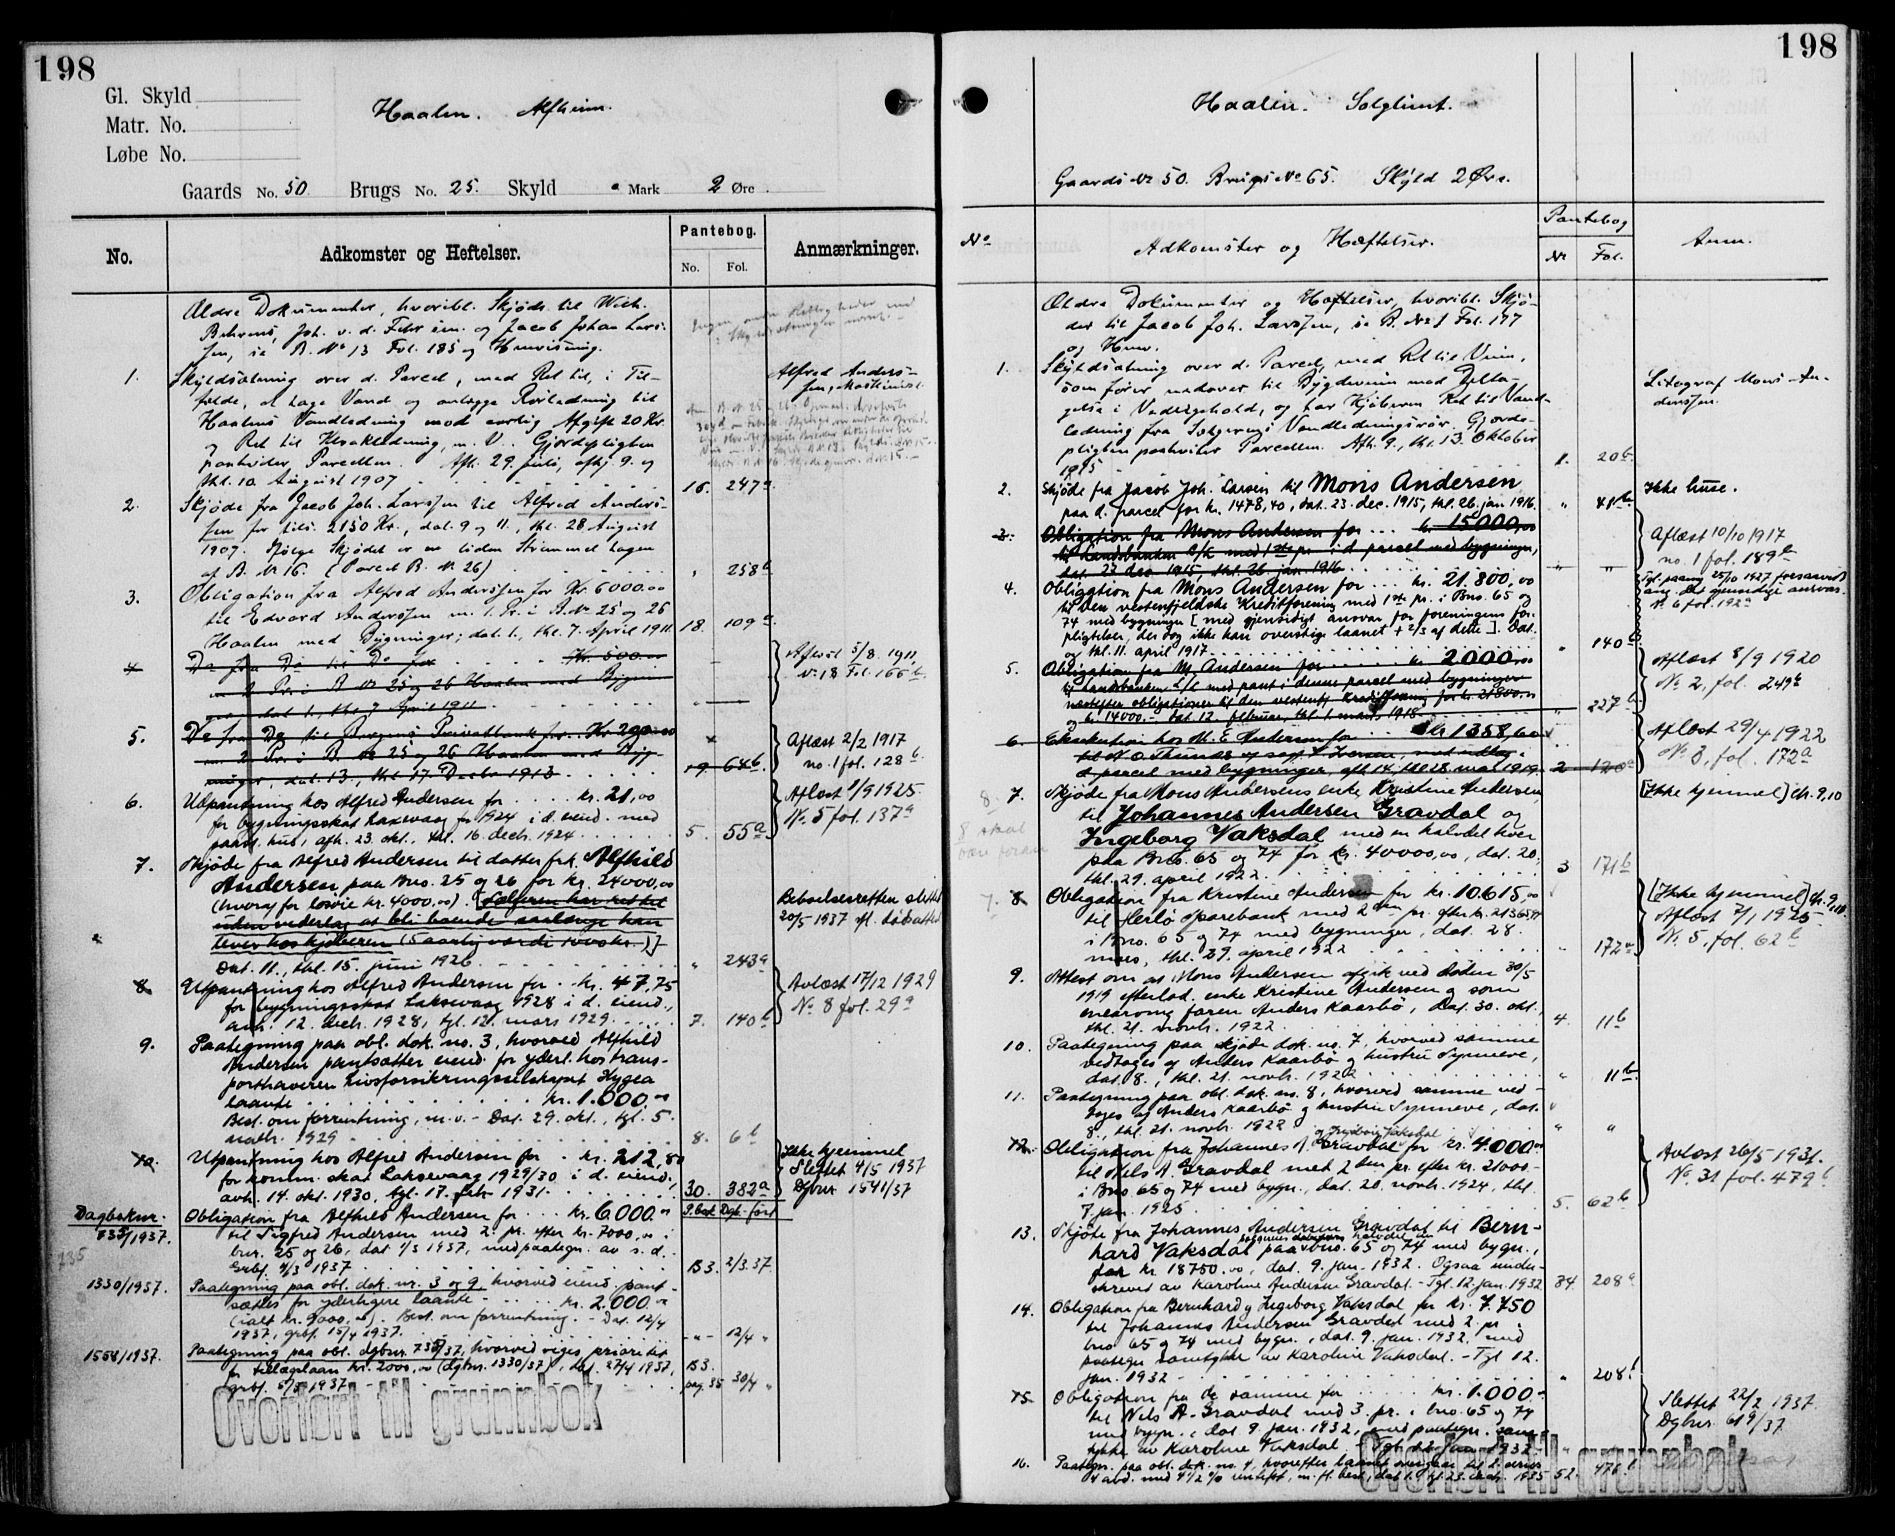 198
Gl. Skyld
Matr. No.
Løbe No.
Haalen. Alfheim.
Gaards No. 50 Brugs No. 25. Skyld " Mark 2 Øre
No.
Adkomster og Heftelser.
Pantebog.
No. Fol.
Anmærkninger.
Ældre Dokumenter, hvoribl. Skjøde til Wilh.
Behrens, Joh. v. d. Fehr jun. og Jacob Johan Lars-
sen, se B. No 13 Fol. 185 og Henvisning.
1. Skyldsætning over d. Parcel, med Ret til, i Til-
fælde, at tage Vand og anlægge Rørledning til
Haalens Vandledning mod aarlig Afgift 20 Kr.
og Ret til Kloakledning, m. V. Gjerdepligten
paahviler Parcellen. Afh. 29. Juli, afhj. 9. og
thl. 10 August 1907 16. 247a
Alfred Anders-
sen, Maskinist.
2. Skjøde fra Jacob Joh. Larssen til Alfred Anders-
sen for tils. 2150 Kr., dat. 9 og 11., thl. 28 August
1907. Ifølge Skjødet er en liden Strimmel tagen
af B. No 16. (Parcel B. No 26) " 258b
3. Obligation fra Alfred Anderssen for Kr. 6000.00
til Edvard Anderssen m. 1. Pr. i B. No 25 og 26
Haalen med Bygninger; dat. 1., thl. 7. April 1911 18. 109a
4. Do fra Do til Do for Kr. 500.00
m. 2 Pr. i B. No 25 og 26 Haalen med Bygnin-
ger, dat. 1., thl. 7 April 1911
Aflæst 5/8. 1911
No 18 Fol. 166b
5. Do fra Do til Bergens Privatbank for Kr. 2000.00
m. 2 Pr. i B. No 25 og 26 Haalen med Byg-
ninger, dat. 13., thl. 17. Decbr 1913 19. 646
Aflæst 2/2 1917
no. 1 fol. 128b
6. Utpantning hos Alfred Andersen for kr. 21,00
for bygningsskat Laksevaag for 1924 i d. eiend. med
paast. hus, afh. 23. okt., thl. 16. decb. 1924 5. 55a
Aflæst 1/9 1925
No. 5 fol. 137a
7. Skjøde fra Alfred Andersen til datter frk. Alfhild
Andersen paa Bno. 25 og 26 for kr. 24000,00
(hvorav for løsøre kr. 4000.00). [Sælgeren har ret til
uten vederlag at bli boende saalænge han
lever hos kjøberen (5 aarlig værdi 1000 kr.)]
Dat. 11., thl. 15. juni 1926 " 243a
Beboelsesretten slettet
20/5 1937 ifl. dødsattest
8. Utpantning hos Alfred Andersen for kr. 47,75
for bygningsskat Laksevaag 1928 i d. eiend.,
avh. 12. decb. 1928, tgl. 12. mars 1929 7. 140b
Avlæst 17/12 1929
No. 8 fol. 29a
9. Paategning paa obl. dok. no. 3, hvorved Alfhild
Andersen pantsætter eiend. for yderl. hos trans-
porthaveren livsforsikringsselskapet Hygea
laante kr. 1.000.00
Best. om forrentning, m. v. - Dat. 29. okt., tgl. 5.
novbr. 1929 8. 6b
10. Utpantning hos Alfred Andersen for kr. 212,80
for komm. skat Laksevaag 1929/30 i d. eiend.,
avh. 14. okt. 1930, tgl. 17. febr 1931 30. 382a
Ikke hjemmel
Slettet 4/5 1937
Dgbnr 1541/37
Dagboknr.
735/1937.
P. bok Dgb. ført
Obligation fra Alfhild Andersen for kr. 6000.00
til Sigfred Andersen med 2. pr. efter kr. 7000,00 i
bnr. 25 og 26, dat 1/3 1937, med paategn. av s. d.
Grbf. 2/3 1937 B3. 2/3.37
735
1330/1937. Paategning paa obl. dok. nr. 3 og 9, hvorved eiend. pant-
sættes for yderligere laante kr. 2.000.00
(ialt kr. 9000.00). Best. om forrentning. - Dat. 12/4
1937, grbf. 15/4 1937 -"- 12/4 "
1558/1937. Paategning paa obl. dgbnr. 735/37, hvorved viges prioritet
for tillægslaan kr. 2000,00 (dgbnr. 1330/37), dat. 27/4 1937, B3.
grbf. 5/5 1937 pag. 35 30/4 "
Overført til grunnbok
198
Haalen. Solglimt.
Gaards No 50. Brugs No 65. Skyld 2 Øre.
No
Adkomster og Hæftelser.
Pantebog
No Fol.
Anm.
Ældre Dokumenter og Hæftelser, hvoribl. Skjø-
der til Jacob Joh. Larssen, se B. No 1 Fol. 177
og Henv.
1. Skyldsætning over d. Parcel, med Ret til Veien,
som fører nedover til Bygdeveien med Delta-
gelse i Vedligehold, og har Kjøberen Ret til Vand-
ledning fra Vandledningsrør. Gjerde-
pligten paahviler Parcellen. Afh. 9., thl. 13. Oktober
1915 1. 20b
Litograf Mons An-
derssen.
2. Skjøde fra Jacob Joh. Larsen til Mons Andersen
paa d. parcel for kr. 1478,40, dat. 23. dec. 1915, thl. 26. jan 1916. " 41b
Ikke huse.
3. Obligation fra Mons Andersen for kr. 15000,00
til Landsbanken A/S med 1ste pr. i d. parcel med bygninger,
dat. 22 dec 1915, thl. 26 jan. 1916 " "
Aflæst 10/10 1917
no. 1 fol. 189b
4. Obligation fra Mons Andersen for kr. 21.800,00
til Den vestenfjeldske Kreditforening med 1ste pr. i Bno. 65 og
74 med bygninger [med gjensidigt ansvar for foreningens for-
pligtelser, der dog ikke kan overstige laanet + 2/3 af dette]. Dat.
og thl. 11. april 1917 " 140b
Tgl. paateg 25/10 1927
ang. det gjensidige ansvar.
No. 6 fol. 192a
5. Obligation fra M. Andersen for kr. 2000.00
til Landsbanken A/S med pant i denne parcel med bygninger
næstefter obligationer til den vestenfj. Kreditforening for kr. 21800.00
og kr. 14000.- Dat. 12. februar, thl. 1. mars 1918 " 227b
Aflæst 8/9 1920
No. 2, fol. 249b
6. Eksekution hos M. E. Andersen for kr 1358,60
d. parcel med bygninger, afh. 14., thl. 28. mai 1919 2 120a
Aflæst 29/4 1922
No. 3, fol. 172a
8. 7. Skjøde fra Mons Andersens enke Kristine Andersen
til Johannes Andersen Gravdal og
Ingeborg Vaksdal med en halvdel hver
paa Bno. 65 og 74 for kr. 40000,00, dat. 20.,
thl. 29. april 1922 3 171b
[Ikke hjemmel] cfr. 9, 10
8 skal
være foran
7. 8. Obligation fra Kristine Andersen for kr. 10.615,00
til Herlø Sparebank med 2den pr. efter kr.
i Bno. 65 og 74 med bygninger, dat. 28.
mars, thl. 29. april 1922 " 172a
[Ikke hjemmel] cfr. 9,10
Aflæst 7/1 1925
No. 5, fol. 62b
9. Attest om at Mons Andersen avgik ved døden 30/5
1919 efterlod. enke Kristine Andersen og som
enearving faren Anders Kaarbø, Dat. 30. okt.,
thl. 21. novbr. 1922 4. 11b
10. Paategning paa skjøde dok. no. 7, hvorved samme
vedtages af Anders Kaarbø og hustru Synneve,
dat. 8., thl. 21. novb. 1922 " 11b
11. Paategning paa obl. dok. no. 8, hvorved samme ved-
tages af Anders Kaarbø og hustru Synneve, dat.
8., thl. 21. novb. 1922 " "
og Ingeborg Vaksdal
12. Obligation fra Johannes A. Gravdal for kr. 4.000.00
til Nels A. Gravdal med 2den pr. efter kr. 21000.-
i Bno. 65 og 74 med bygn., dat. 20. novb. 1924, thl.
7. jan. 1925 5. 62b
Avlæst 26/5 1931.
No. 31 fol. 479b
13. Skjøte fra Johannes Andersen Gravdal til Bern-
hard Vaksdal paa bno. 65 og 74 med bygn.,
for kr. 18750.00, dat. 9. jan. 1932. Ogsaa under-
skrevet av Karoline Andersen Gravdal. - Tgl. 12. jan. 1932 34. 208a
14. Obligation fra Bernhard og Ingeborg Vaksdal for kr. 7.750
til Johannes Andersen Gravdal med 2. pr. i
bno 65 og 74 med bygn., dat. 9. jan. 1932, med
paategn samtykke av Karoline Vaksdal. - Tgl 12.
jan. 1932 " 208b
15. Obligation fra de samme for kr. 1.000.-
til Nels A. Gravdal med 3. pr. i bno. 65 og 74
med bygn., dat 9. jan. 1932, med paategn. sam-
tykke av Karoline Vaksdal. - Tgl. 12. jan. 1932 "
Slettet 22/2 1937.
Dgbnr. 619/37
16. Paategn. paa obl. dok. no. 4, hvorefter laanet overgaar til 2. serie
4 avd. med 4 1/2 % rentefot, m. fl. best., 1935 52. 476b
Overført til grunnbok